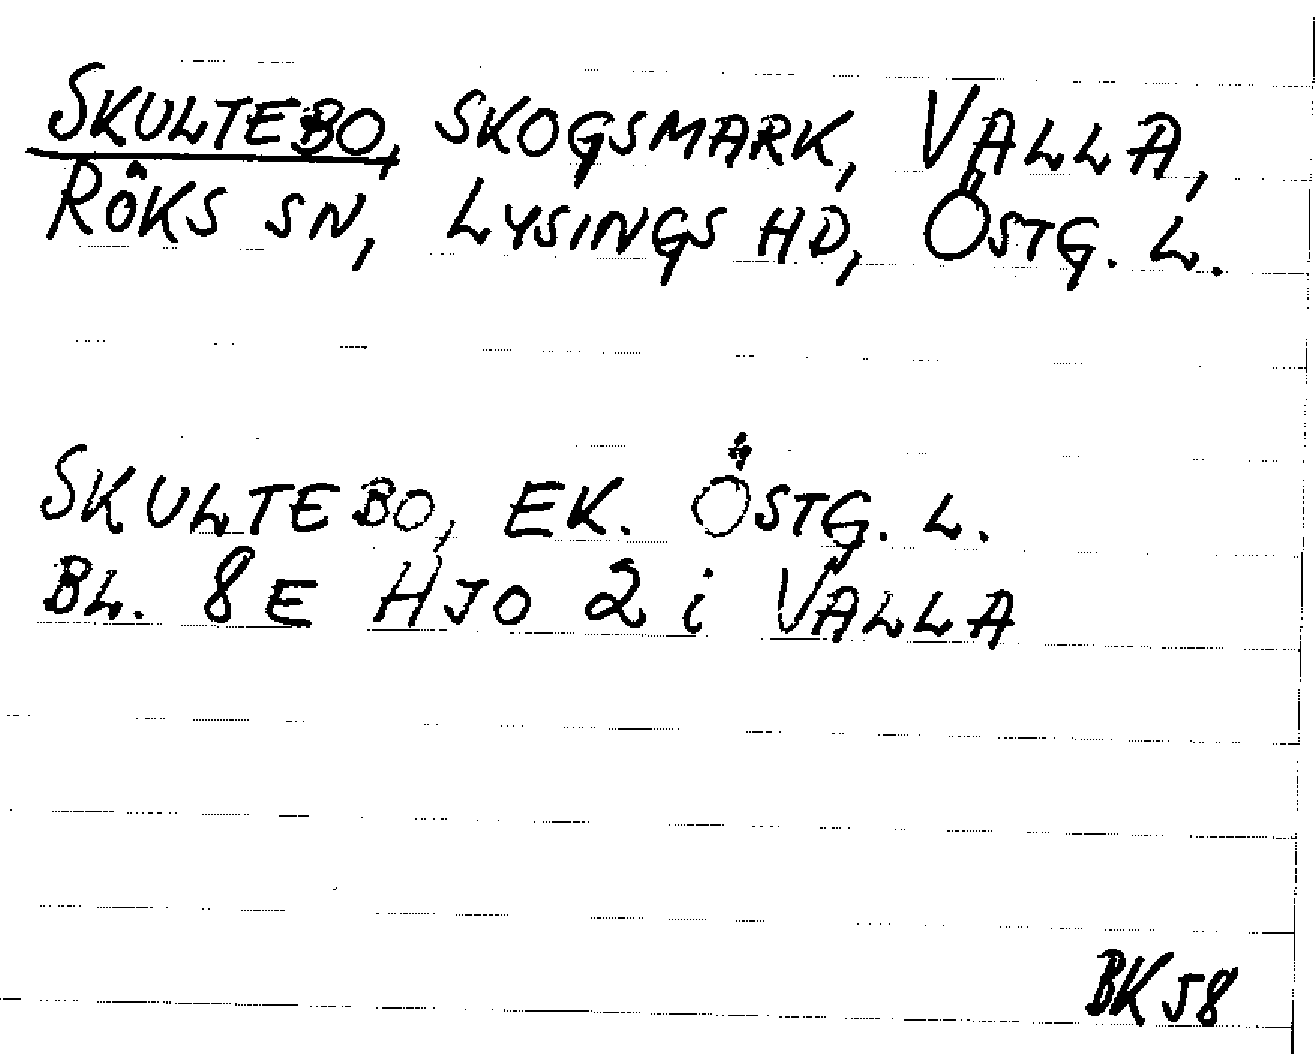 SKULTEBO, SKOGSMARK, VALLA,
RÖKS SN, LYSINGS HD, ÖSTG. L.
SKULTEBO, EK. ÖSTG. L.
BL. 8E HJO 2 i VALLA
BK58